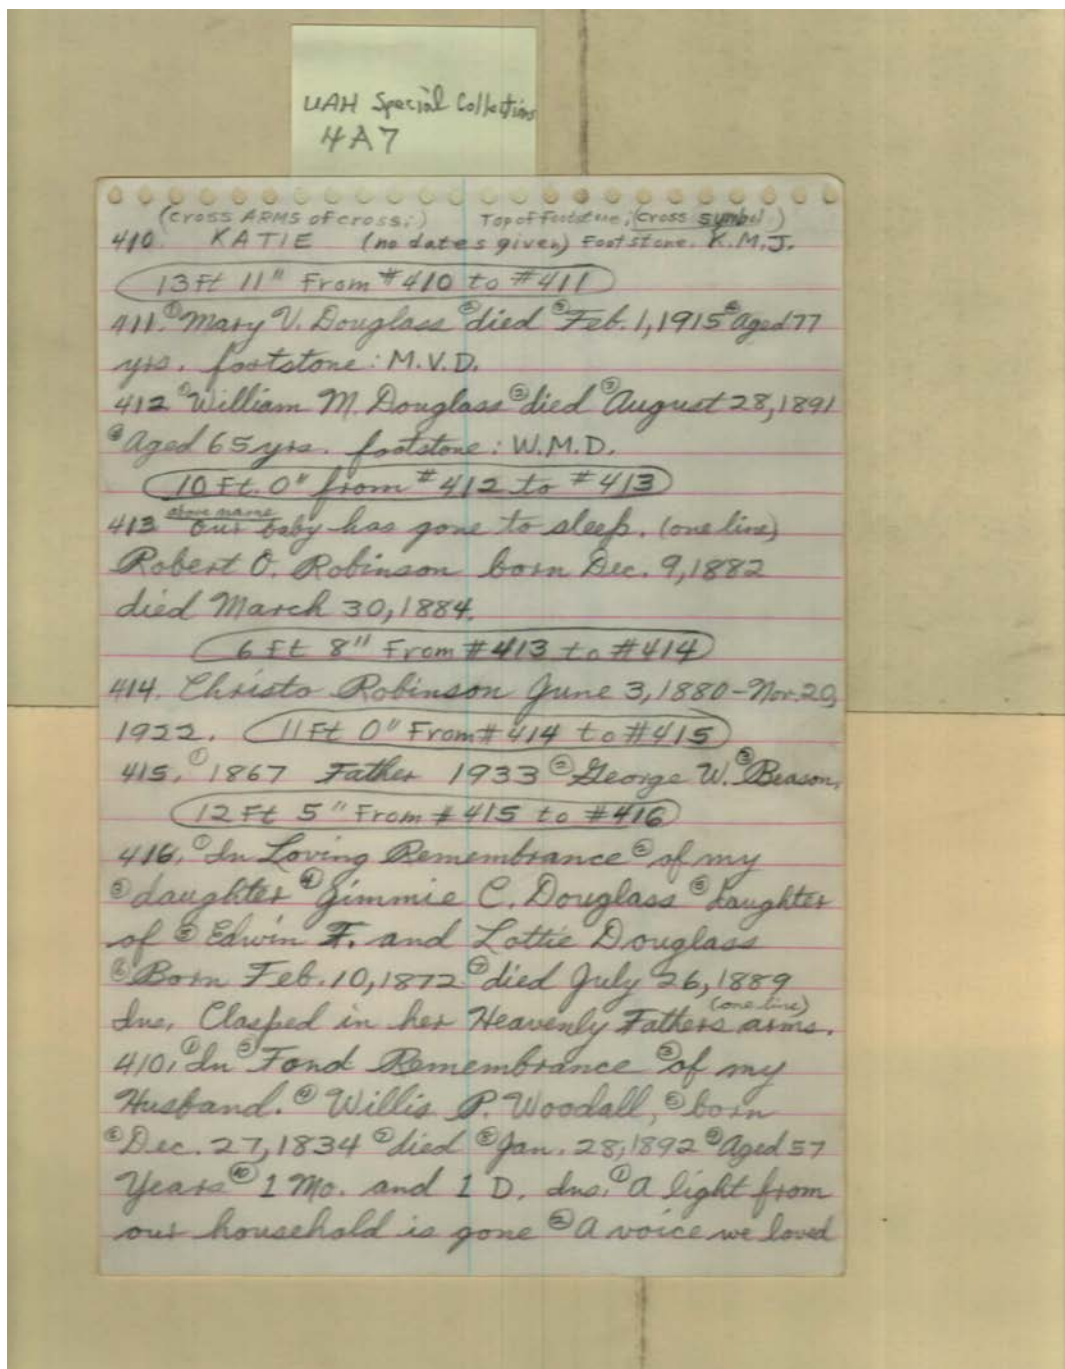 UAH Special Collections
4A7
(cross ARMS of cross:) Top of footstone; (cross symbol)
410. KATIE (no dates given) Footstone. K.M.J.
13 Ft 11" From #410 to #411
411. ① Mary V. Douglass ② died ③ Feb. 1, 1915 ④ Aged 77
yrs. footstone: M.V.D.
412 ① William M. Douglass ② died ③ August 28, 1891
④ Aged 65 yrs. footstone: W.M.D.
10 Ft. 0" from #412 to #413
above name
413 Our baby has gone to sleep. (one line)
Robert O. Robinson born Dec. 9, 1882
died March 30, 1884.
6 Ft 8" From #413 to #414
414. Christo Robinson June 3, 1880 - Nov. 20,
1922. 11 Ft 0" From #414 to #415
415. ① 1867 Father 1933 ② George W. ③ Beason.
12 Ft 5" From #415 to #416
416. ① In Loving Remembrance ② of my
③ daughter ④ Jimmie C. Douglass ⑤ Daughter
of ⑤ Edwin F. and Lottie Douglass
⑥ Born Feb. 10, 1872 ⑦ died July 26, 1889
(one line)
Ins. Clasped in her Heavenly Fathers arms.
410. ① In ② Fond Remembrance ③ of my
Husband. ④ Willis P. Woodall, ⑤ born
⑥ Dec. 27, 1834 ⑦ died ⑧ Jan. 28, 1892 ⑨ Aged 57
Years ⑩ 1 Mo. and 1 D. Ins. ① A light from
our household is gone ② A voice we loved